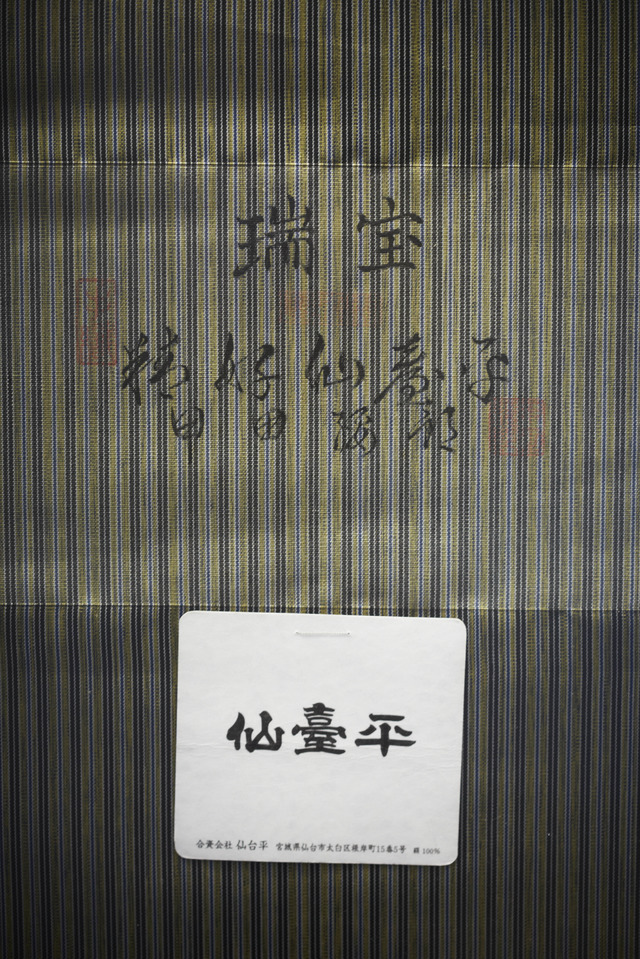 瑞宝
精好仙臺平
甲田
仙臺平
合資会社 仙台平 宮城県仙台市太白区根岸町15番5号 絹100%